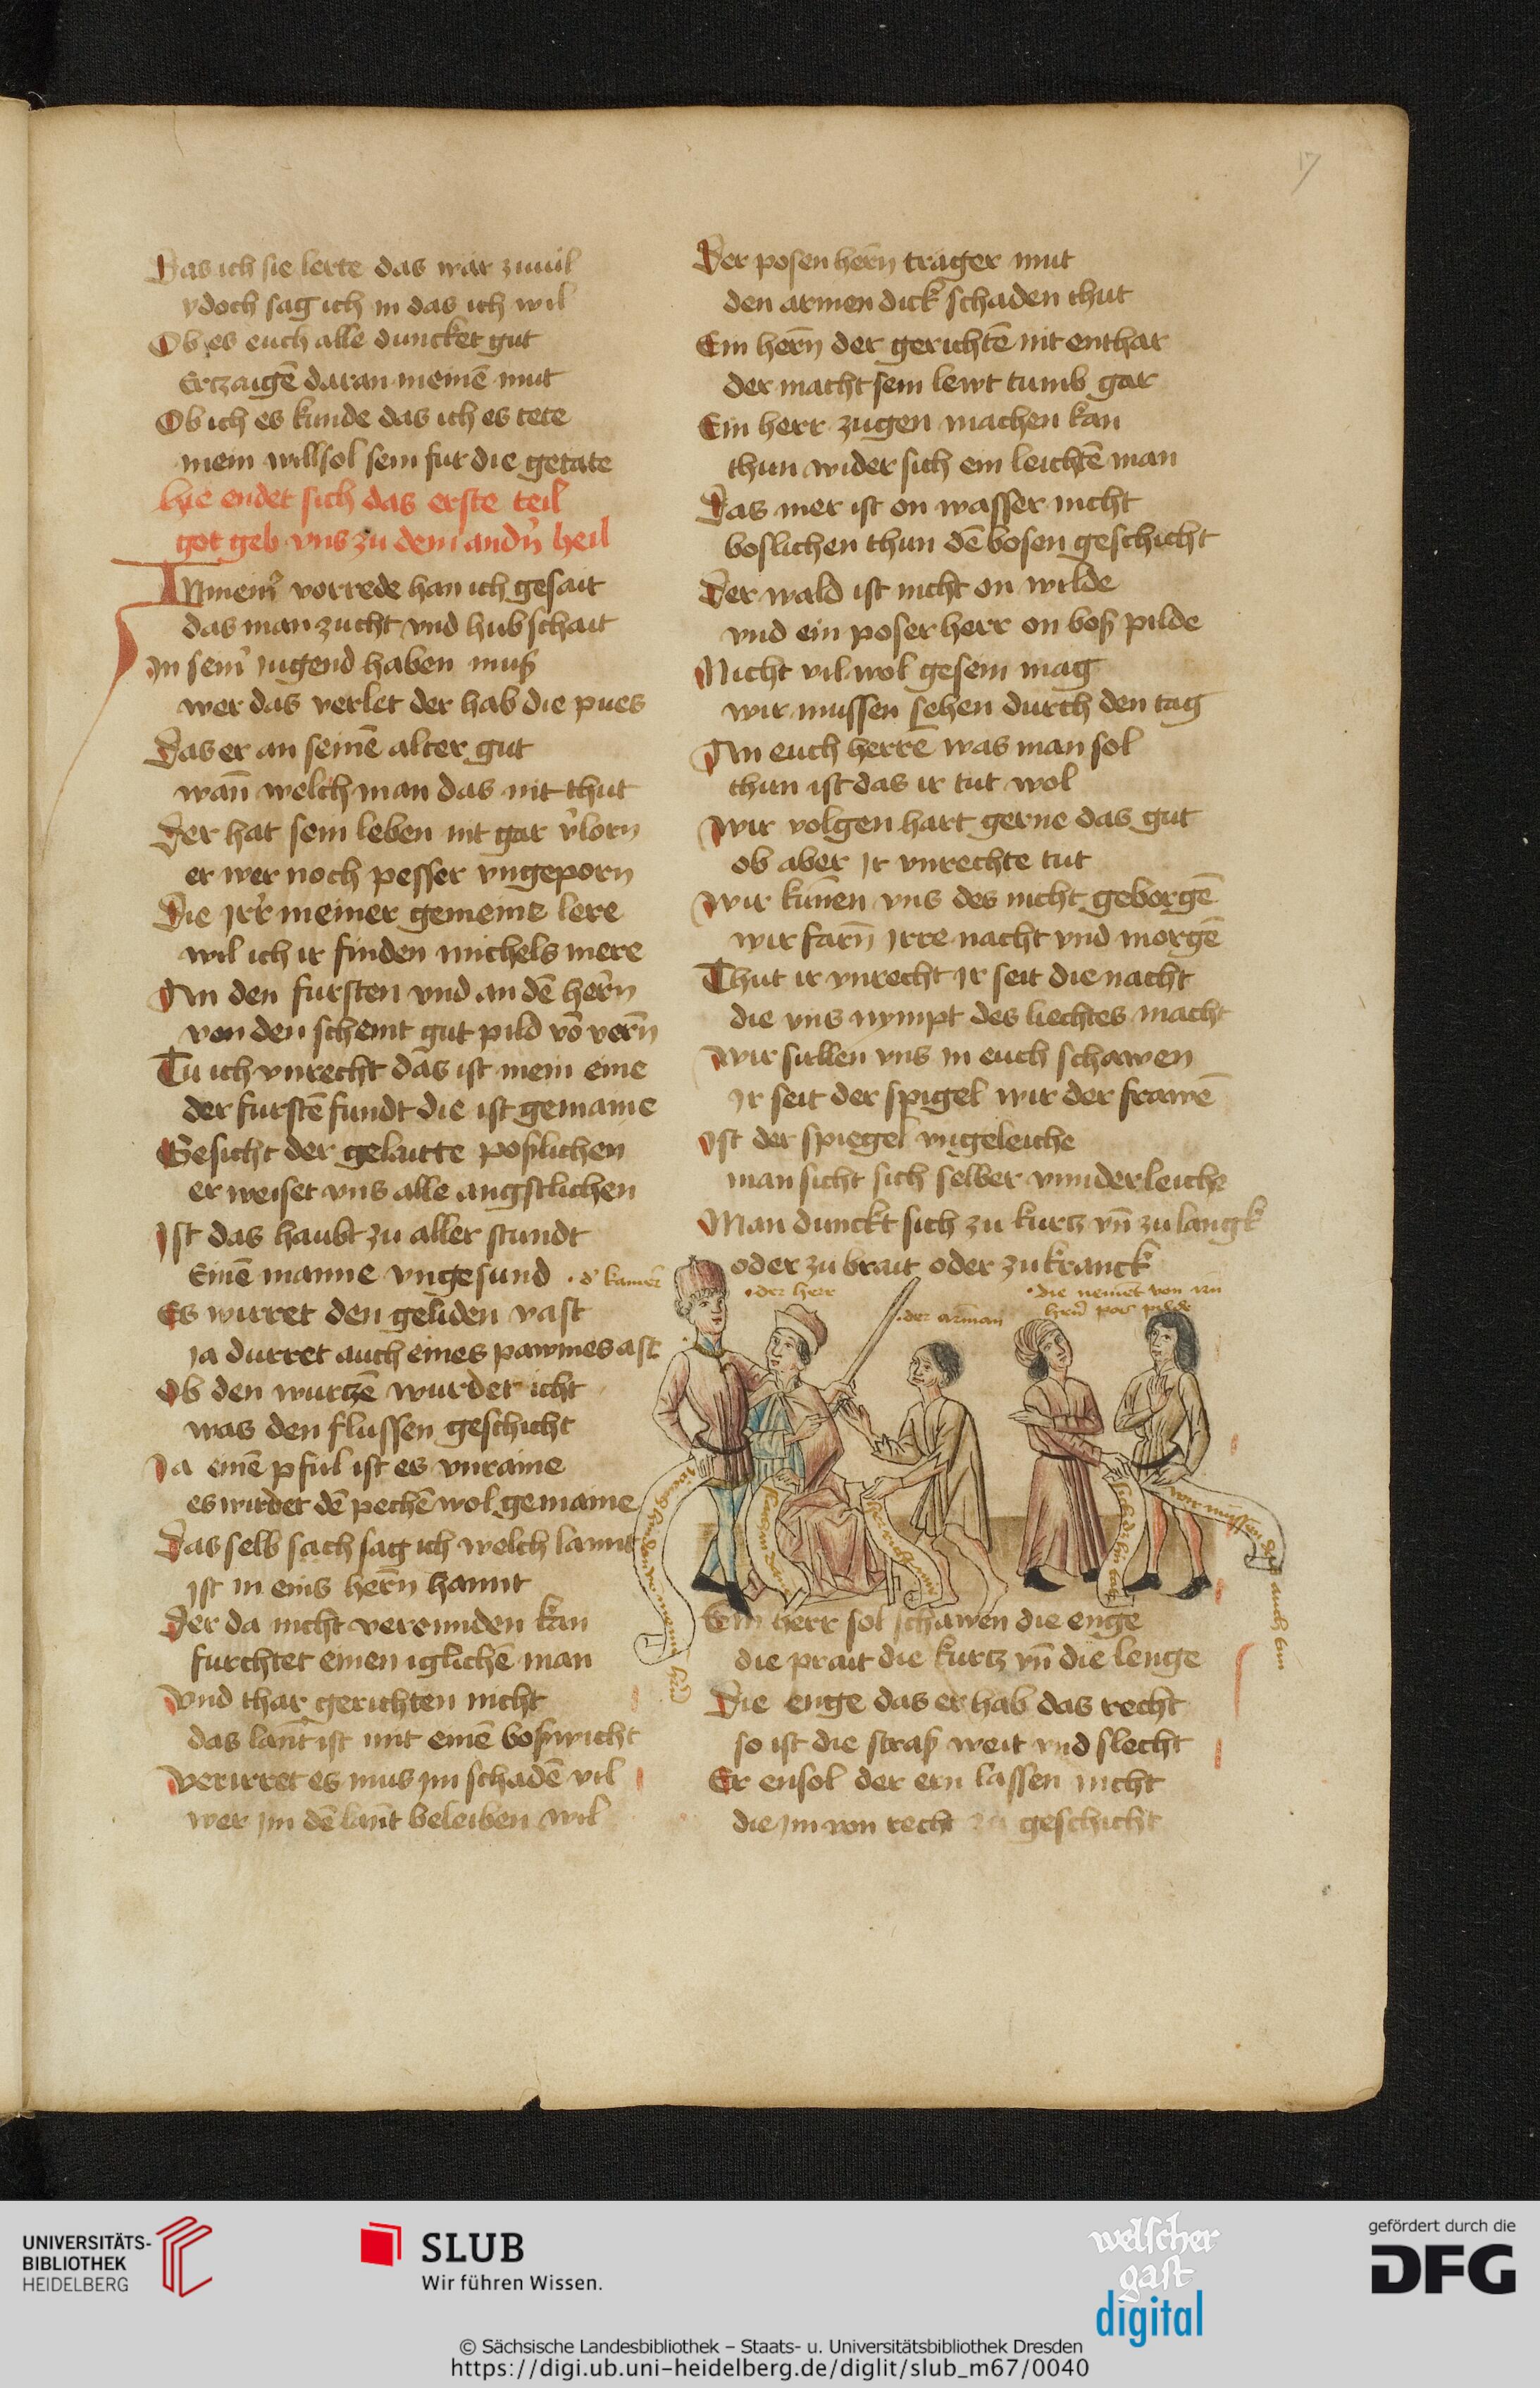 17
Das ich sie lerte das wär zuuil
ydoch sag ich in das ich wil
Ob es euch alle duncket gut
Ertzaigē daran meinē mut
Ob ich es kunde das ich es tete
mein will sol sein fur die getate
hie endet sich das erste teil
got geb vns zu dem andn̄ heil
IN mein̄ vorrede han ich gesait
das man zucht vnd hubschait
In sein̄ Iugend haben muß
wer das verlet der hab die pues
Das er an seinē alter gut
wan̄ welch man das nit thut
Der hat sein leben nit gar v̓lorn
er wer noch pesser vngeporn
Die Irr̓ meiner gemeine lere
wil ich ir finden michels mere
An den fursten vnd an dē hern̄
von den scheint gut pild vō vern̄
Tu ich vnrecht das ist mein eine
der furstē fundt die ist gemaine
Gesicht der gelaitte poßlichen
er weiset vns alle angstlichen
Ist das haubt zu aller stundt
Einē manne vngesund
Es wirret den geliden vast
Ja durret auch eines pawmes ast
Ob den wurtzē wurdet icht
was den flussen geschicht
Ja einē pful ist es vnraine
es wirdet dē pechē wol gemaine
Das selb sach sag ich welch lannt
Ist in eins hern̄ hannt
Der da nicht verennden kan
furchtet einen iglichē man
Vnd thar gerichten nicht
das lan̄t ist mit einē boßwicht
Verirret es mus im schadē vil
wer im dē lan̄t beleiben wil
Der posen hern̄ träger mut
den armen dick schaden thut
Ein hern̄ der gerichtē nit enthar
der macht sein lewt tumb gar
Ein herr zugen machen kan
thun wider sich ein leichtē man
Das mer ist on wasser nicht
boslichen thun dē bosen geschicht
Der wald ist nicht on wilde
vnd ein poser herr on boß pilde
Nicht vil wol gesein mag
wir mussen sehen durch den tag
An euch herrē was man sol
thun ist das ir tut wol
Wir volgen hart gerne das gut
ob aber Ir vnrechte tut
Wir kun̄en vns des nicht geborgē
wir farn̄ Irre nacht vnd morgē
Thut ir vnrecht Ir seit die nacht
die vns nympt des liechtes macht
Wir sullen vns in euch schawen
Ir seit der spigel wir der frawē
Ist der spiegel vngeleiche
man sicht sich selber wunderleiche
Man dunckt sich zu kurtz vn̄ zu langk
oder zu brait oder zu kranck
d̓ kamer̄
der herr
der arman
die nemēt von irn
hern̄ pos pilde
wir mussen
auch
Ein herr sol schawen die enge
die prait die kurtz vn̄ die lenge
Die enge das er hab das recht
so ist die straß weit vnd slecht
Er ensol der ern lassen nicht
die Im von recht zu geschicht
UNIVERSITÄTS-
BIBLIOTHEK
HEIDELBERG
SLUB
Wir führen Wissen.
welscher
gast
digital
gefördert durch die
DFG
© Sächsische Landesbibliothek – Staats- u. Universitätsbibliothek Dresden
https://digi.ub.uni-heidelberg.de/diglit/slub_m67/0040